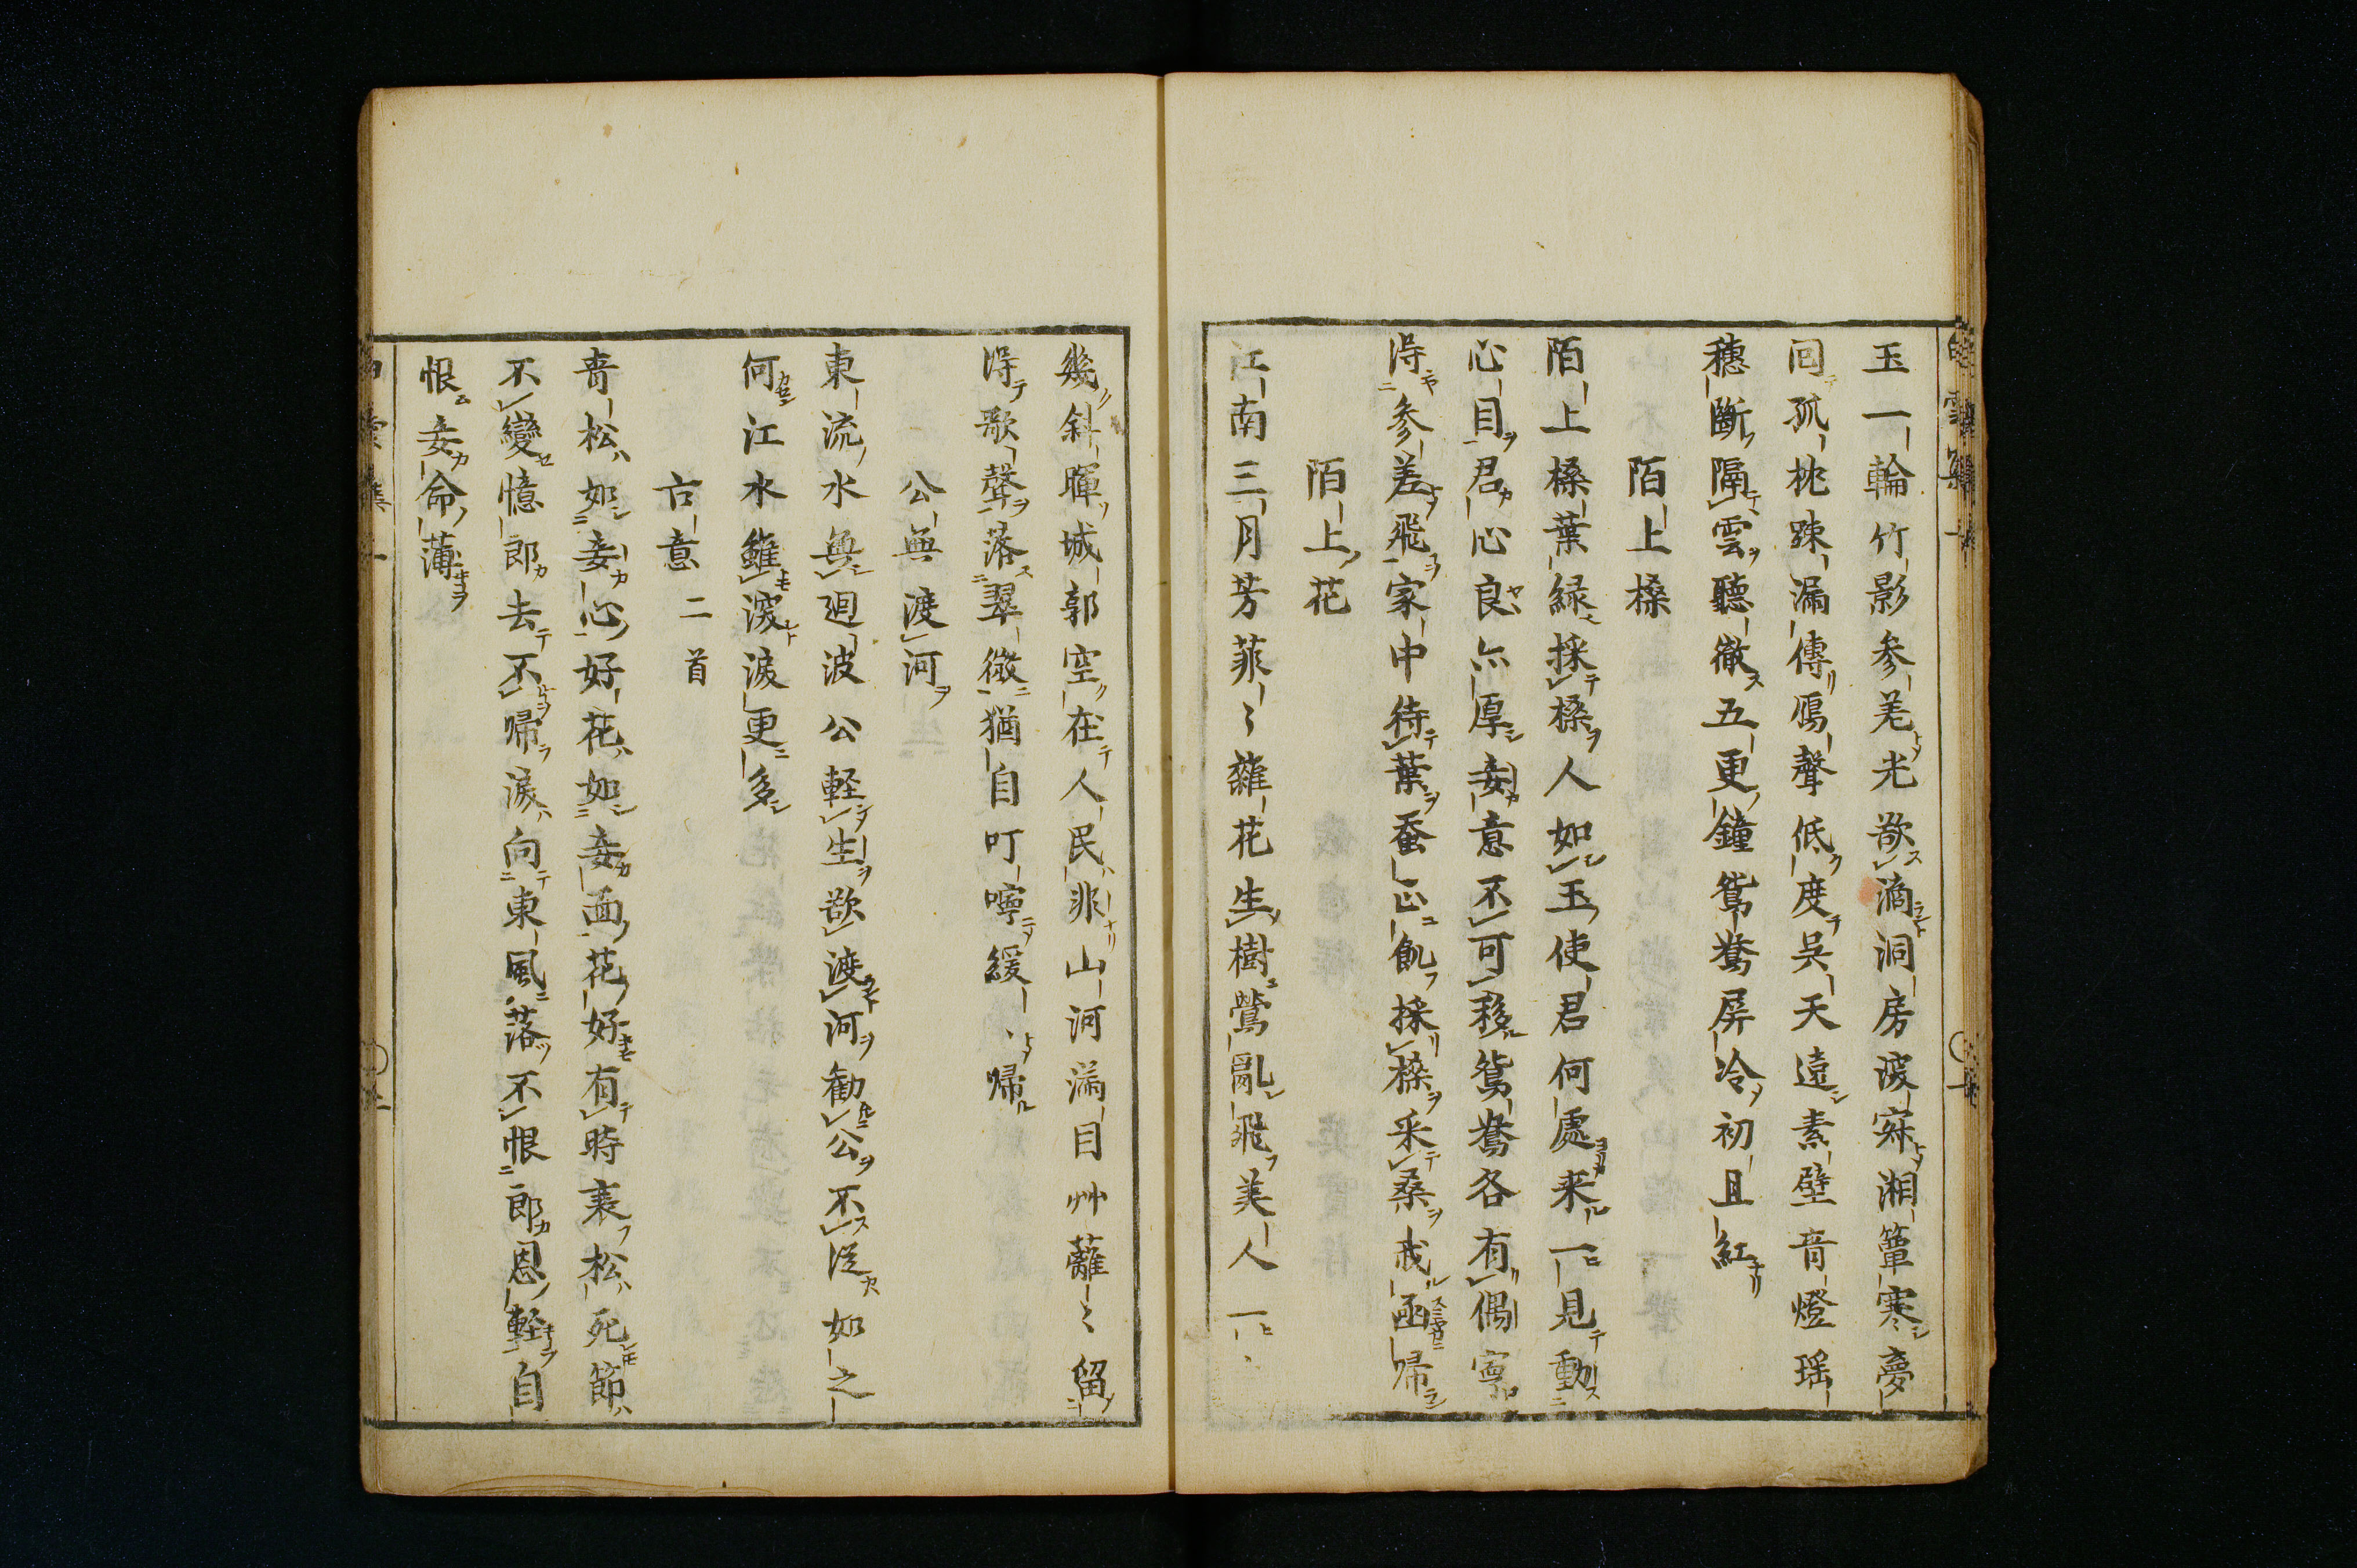 玉一輪竹影参差光欲滴洞房波寂湘簟寒夢
回孤枕踈漏傳鴈聲低度呉天遠素壁青燈瑶
穗斷隔雲聽徹五更鐘鴛鴦屏冷初且紅
陌上桑
陌上桑葉緑採桑人如玉使君何處来一見動
心目君心良亦厚妾意不可移鴛鴦各有偶寧
得参差飛家中待葉蚕正飢採桑采桑戒函帰
陌上花
江南三月芳菲〻雜花生樹鶯亂飛美人一
幾斜暉城郭空在人民非山河満目艸離〻留
得歌聲落翠微猶自叮嚀緩〻帰
公無渡河
東流水無廻波公軽生欲渡河勧公不従如之
何江水雖深淚更多
古意二首
青松如妾心好花如妾面花好有時衰松死節
不變憶郎去不帰淚向東風落不恨郎恩軽自
恨妾命薄